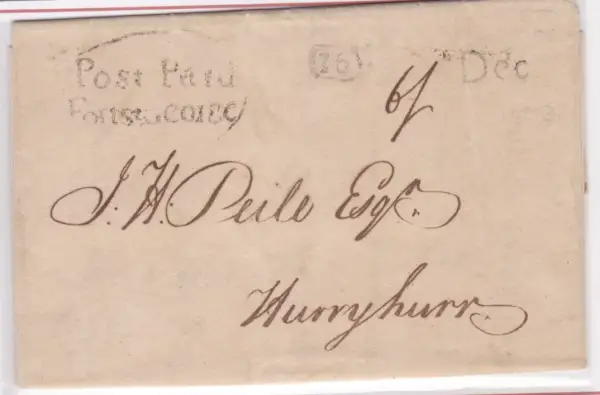 Post Paid
26
Dec
6/
J. H. Peile Esqr.
Hurryhurr.